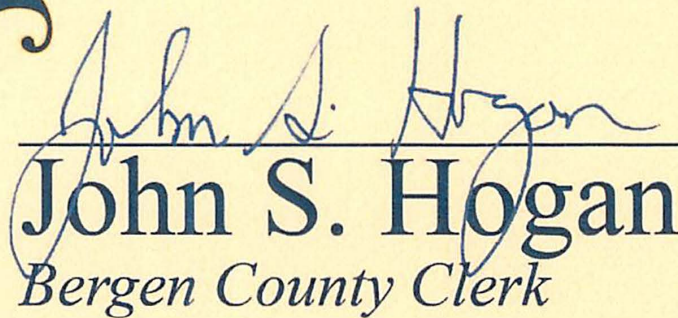 John S. Hogan
John S. Hogan
Bergen County Clerk